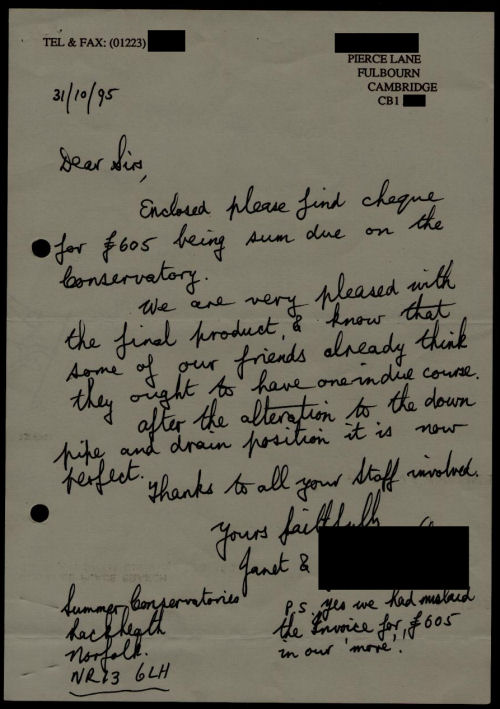 TEL & FAX: (01223)
PIERCE LANE
FULBOURN
CAMBRIDGE
CB1
31/10/95
Dear Sirs,
Enclosed please find cheque
for £605 being sum due on the
Conservatory.
We are very pleased with
the final product, & know that
some of our friends already think
they ought to have one in due course.
After the alteration to the down
pipe and drain position it is now
perfect.
Thanks to all your Staff involved.
Yours faithfully
Janet &
Summer Conservatories
Rackheath
Norfolk.
NR13 6LH
P.S. Yes we had mislaid
the Invoice for £605
in our 'move'.